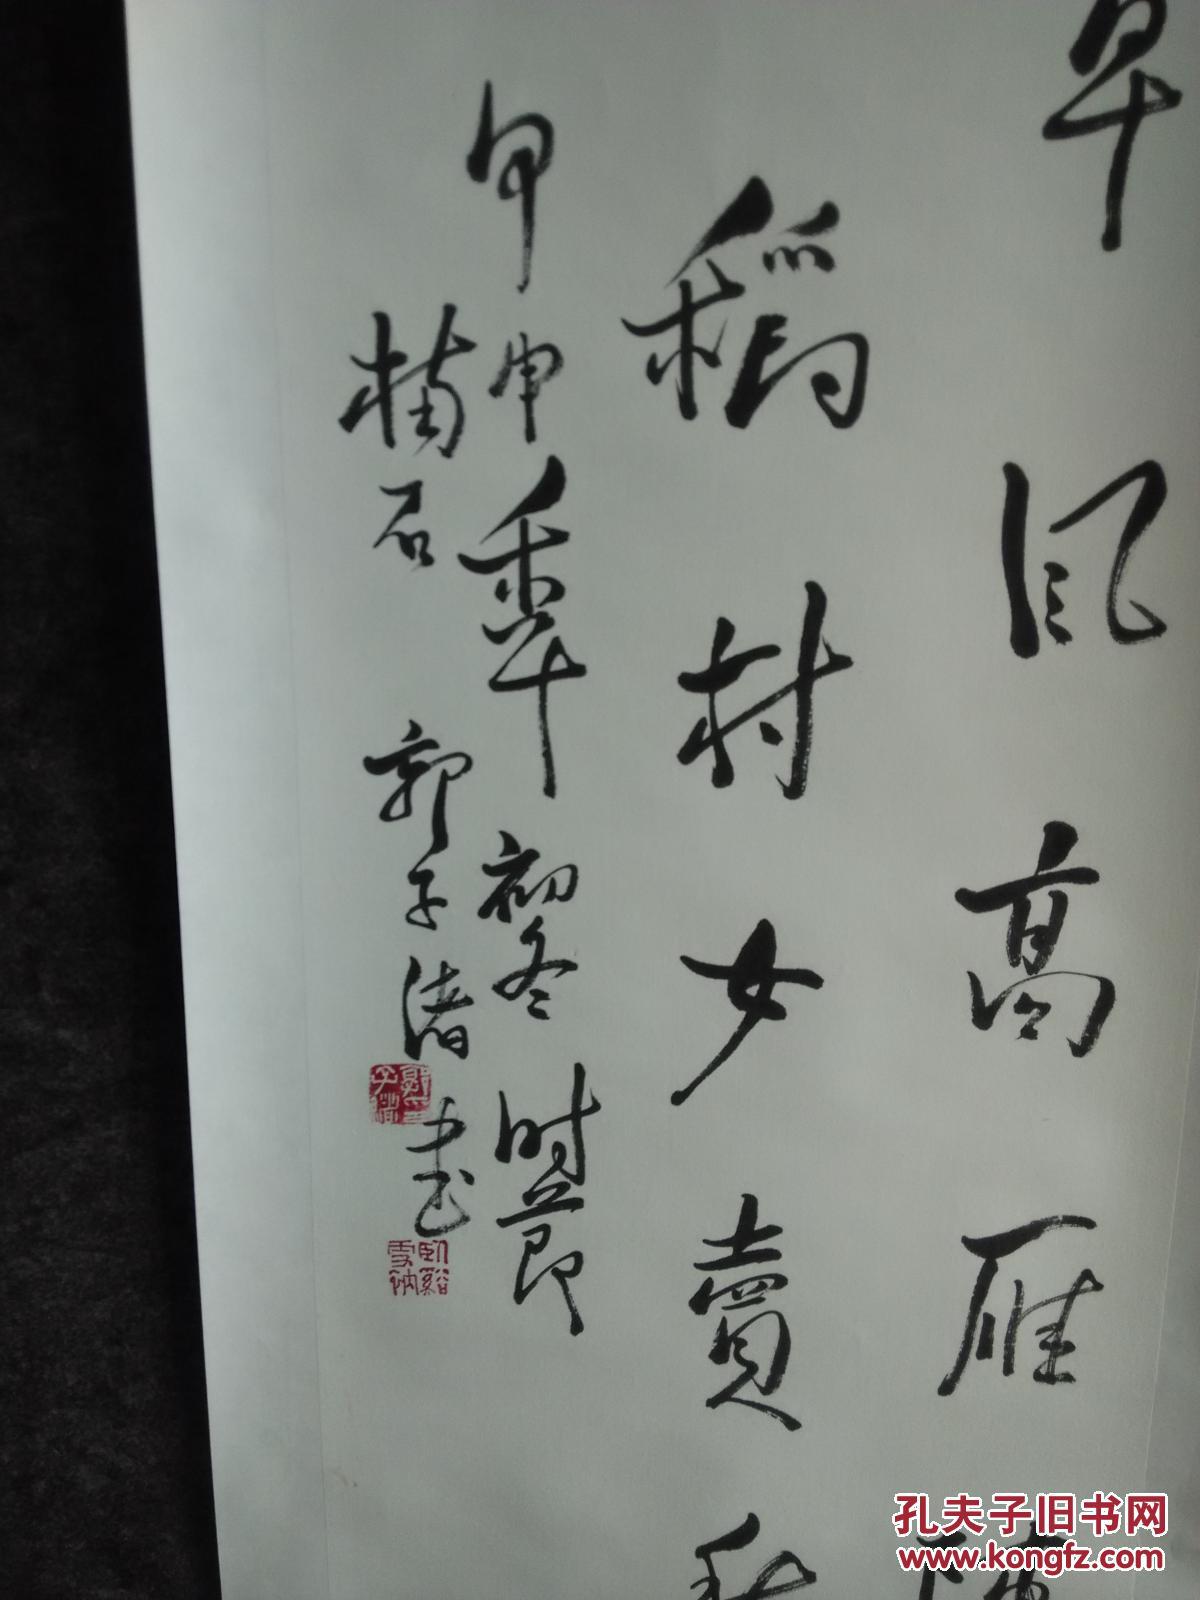 早风高雁陣
稻村女賣
甲申年初冬時節
楠石 郭子渚書
孔夫子旧书网
www.kongfz.com